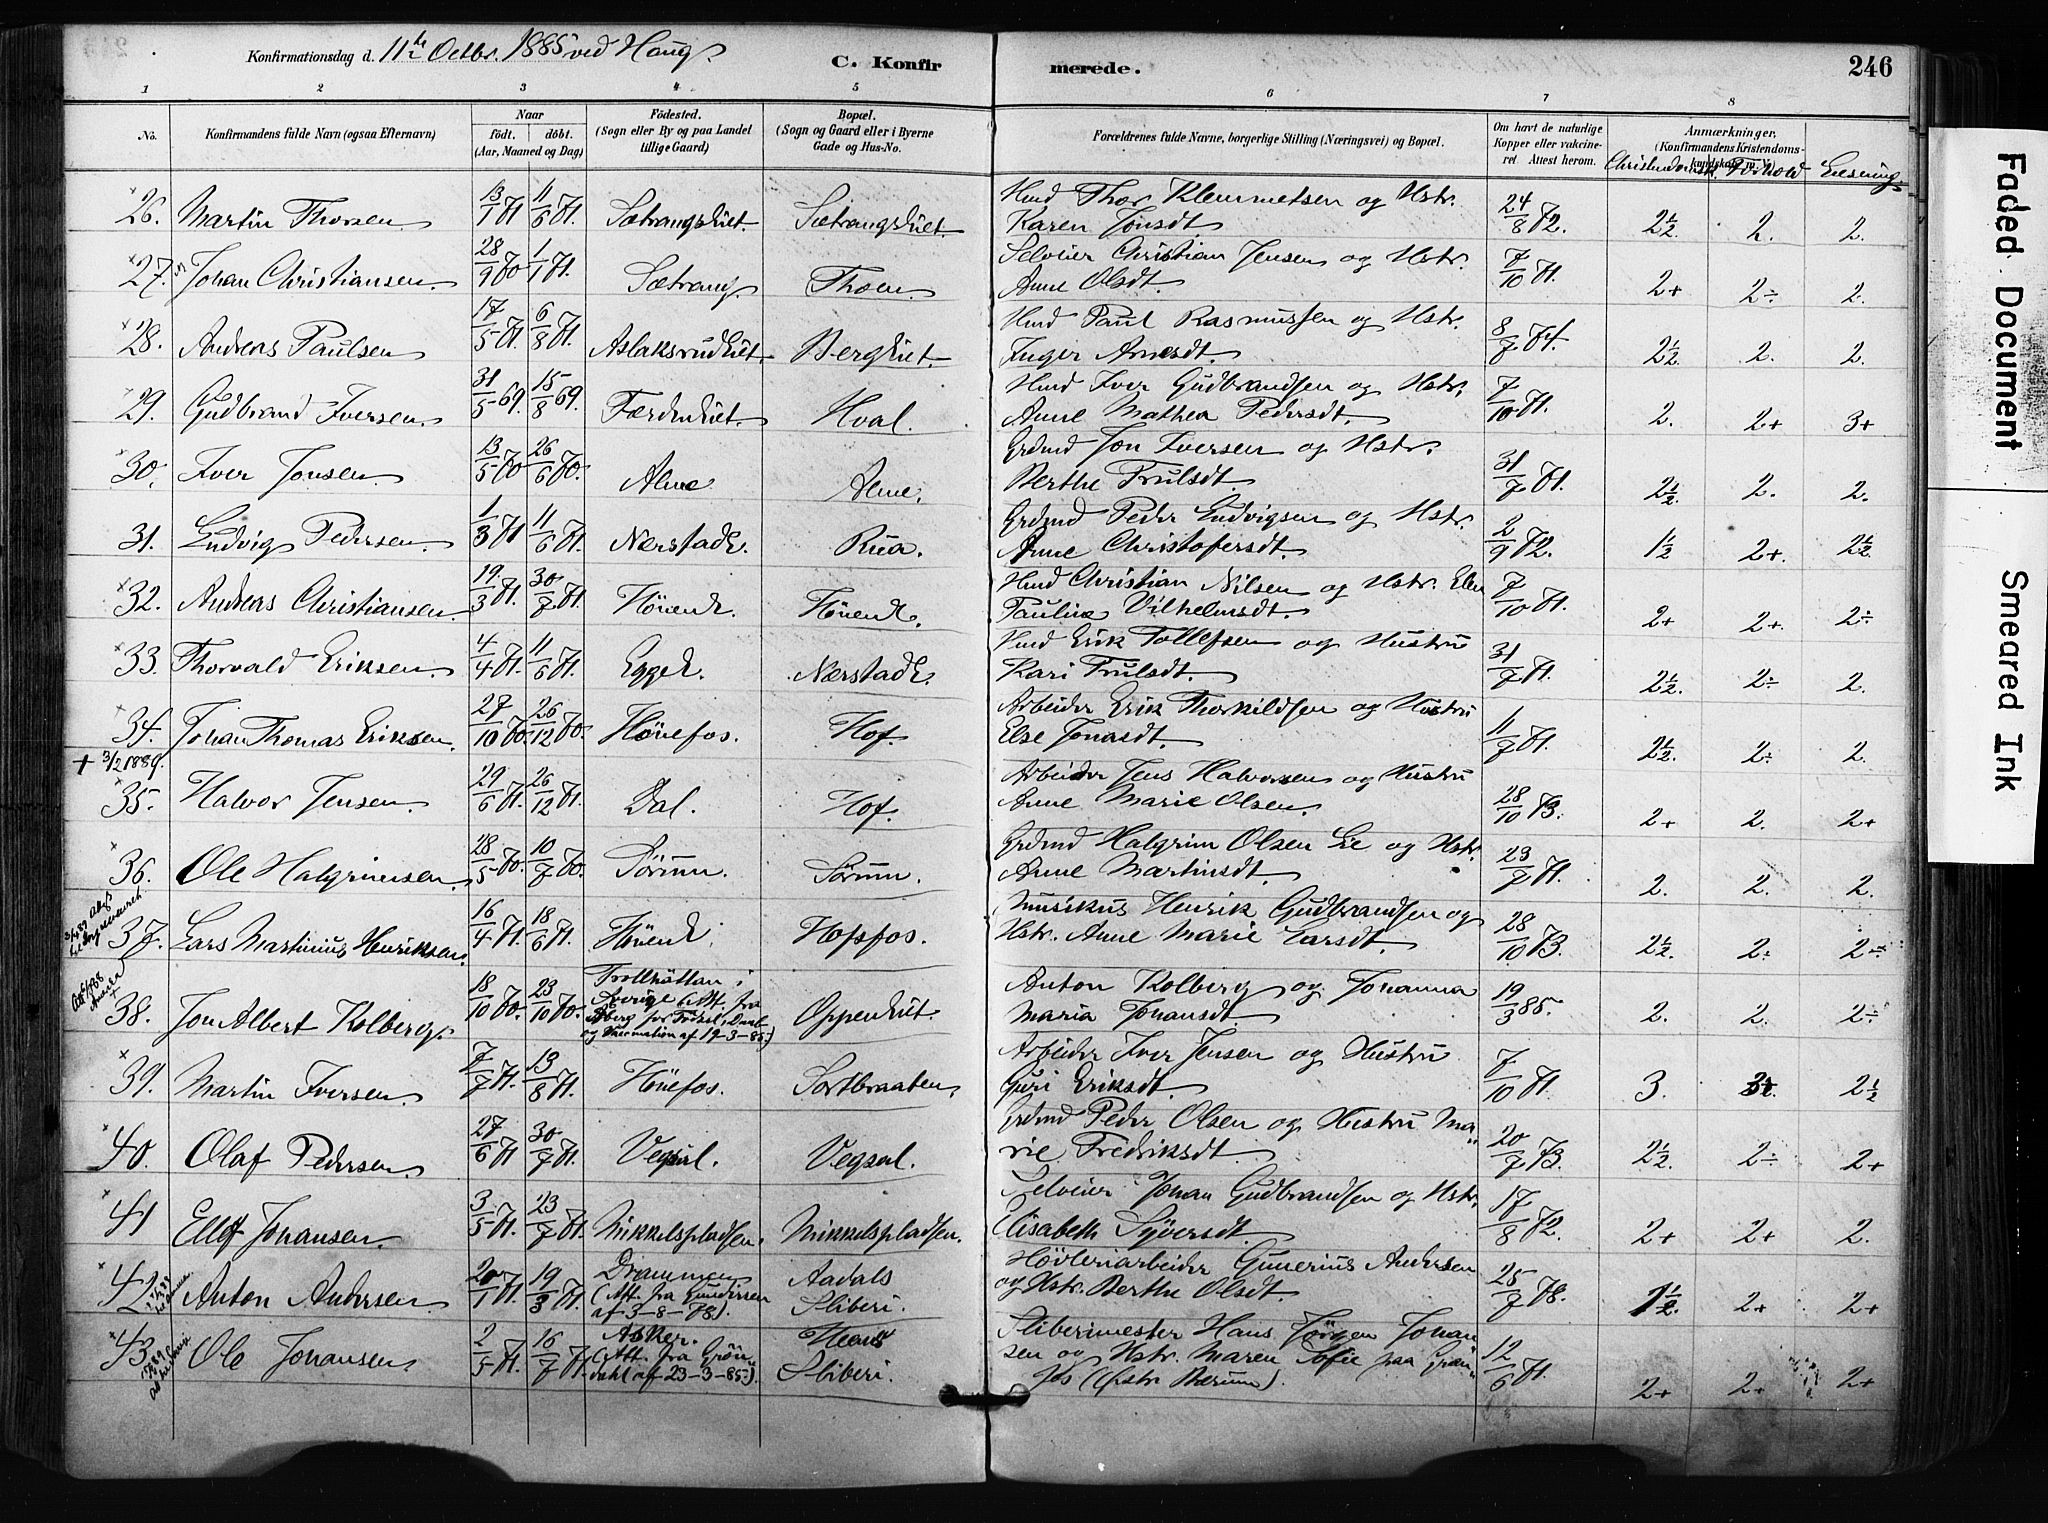 Konfirmationsdag d. 11te Octbr. 1885 ved Haug.
C. Konfirmerede.
246
1 2 3 4 5 6 7 8
No. Konfirmandens fulde Navn (ogsaa Efternavn) Naar födt. döbt. (Aar, Maaned og Dag) Födested. (Sogn eller By og paa Landet tillige Gaard) Bopæl. (Sogn og Gaard eller i Byerne Gade og Hus-No. Forældrenes fulde Navne, borgerlige Stilling (Næringsvei) og Bopæl. Om havt de naturlige Kopper eller vakcineret Attest herom. Anmærkninger. (Konfirmandens Kristendomskundskab m. V.)
Christendomsk. Forhold Læsning
26. Martin Thorsen. 13/1 71 11/6 71. Sætrangseiet. Sætrangseiet. Hmd Thor Klemmetsen og Hstr. Karen Jonsdt. 24/8 72. 2½. 2. 2.
27. Johan Christiansen. 28/9 70 1/1 71. Sætrang. Thoen. Selveier Christian Jensen og Hstr. Anne Olsdt. 7/10 71. 2+ 2÷ 2.
28. Andreas Paulsen. 17/5 71. 6/8 71. Aslaksrudeiet. Bergeiet. Hmd Paul Rasmussen og Hstr. Inger Arnesdt. 8/7 74. 2½. 2. 2.
29. Gudbrand Iversen. 31/5 69. 15/8 69. Færdeneiet. Hval. Hmd Iver Gudbrandsen og Hstr. Anne Mathea Pedersdt. 7/10 71. 2. 2+ 3+
30. Iver Jonsen. 13/5 70 26/6 70. Alme Alme. Grdmd Jon Iversen og Hstr. Berthe Trulsdt. 31/7 71. 2½. 2. 2.
31. Ludvig Pedersen. 1/3 71 11/6 71. Nærstade. Rua. Grdmd Peder Ludvigsen og Hstr. Anne Christofersdt. 2/9 72. 1½ 2+. 2½.
32. Andreas Christiansen. 19/3 71. 30/7 71. Hönene. Hönene. Hmd Christian Nilsen og Hstr. Elen Pauline Vilhelmsdt. 7/10 71. 2+ 2+. 2÷
33. Thorvald Eriksen. 4/4 71. 11/6 71. Egge. Nærstade. Hmd Erik Tollefsen og Hustru Kari Trulsdt. 31/7 71. 2½. 2÷ 2.
34. Johan Thomas Eriksen. 27/10 70. 26/12 70. Hönefos. Hof. Arbeider Erik Thorkildsen og Hustru Else Jonasdt. 11/7 71. 2½. 2÷ 2.
+ 3/2 1889.
35. Halvor Jensen. 29/6 71. 26/12 71. Dal. Hof. Arbeider Jens Halvorsen og Hustru Anne Marie Olsen. 28/10 73. 2+ 2. 2+
36. Ole Halgrimsen. 28/5 70. 10/7 70. Sörum. Sörum. Grdmd Halgrim Olsen Lie og Hstr. Anne Martinsdt. 23/7 71. 2. 2. 2.
37. Lars Martinius Henriksen. 16/4 71. 18/6 71. Hönene. Hopfos. Musikus Henrik Gudbrandsen og Hstr. Anne Marie Larsdt. 28/10 73. 2½. 2÷ 2÷
38. Jon Albert Kolberg. 18/10 70. 23/10 70. Trollhättan i Sverige (Att. fra Oppeneiet. Anton Kolberg og Johanna Maria Johansdt. 19/3 85. 2. 2. 2÷
og Vaccination af 19-3-85.)
39. Martin Iversen. 7/7 71. 13/8 71. Hönefos. Sortbraaten. Arbeider Iver Jensen og Hustru Guri Eriksdt. 7/10 71. 3. 2½
40. Olaf Pedersen 27/6 71 30/7 71. Vegsal. Vegsal. Grdmd Peder Olsen og Hustru Marie Fredriksdt. 20/7 73. 2½. 2÷ 2+
41 Ellef Johansen. 3/5 71. 23/7 71. Mikkelspladsen. Mikkelspladsen. Selveier Johan Gudbrandsen og Hstr. Elisabeth Syversdt. 17/8 72. 2+ 2+ 2.
42. Anton Andersen. 20/1 71. 19/3 71. Drammen (Att. fra Gundersen af 3-8-78). Aadals Sliberi. Hövleriarbeider Gunerius Andersen og Hstr. Berthe Olsdt. 25/7 78. 1½. 2+ 2+
43. Ole Johansen. 2/5 71. 16/7 71. Asker. (Att. fra Gröndahl af 23-3-85.) Heens Sliberi. Sliberimester Hans Jörgen Johansen og Hstr. Maren Sofie paa Granfos (Östr. Bærum). 12/6 71. 2+ 2+ 2+
Faded Document
Smeared Ink